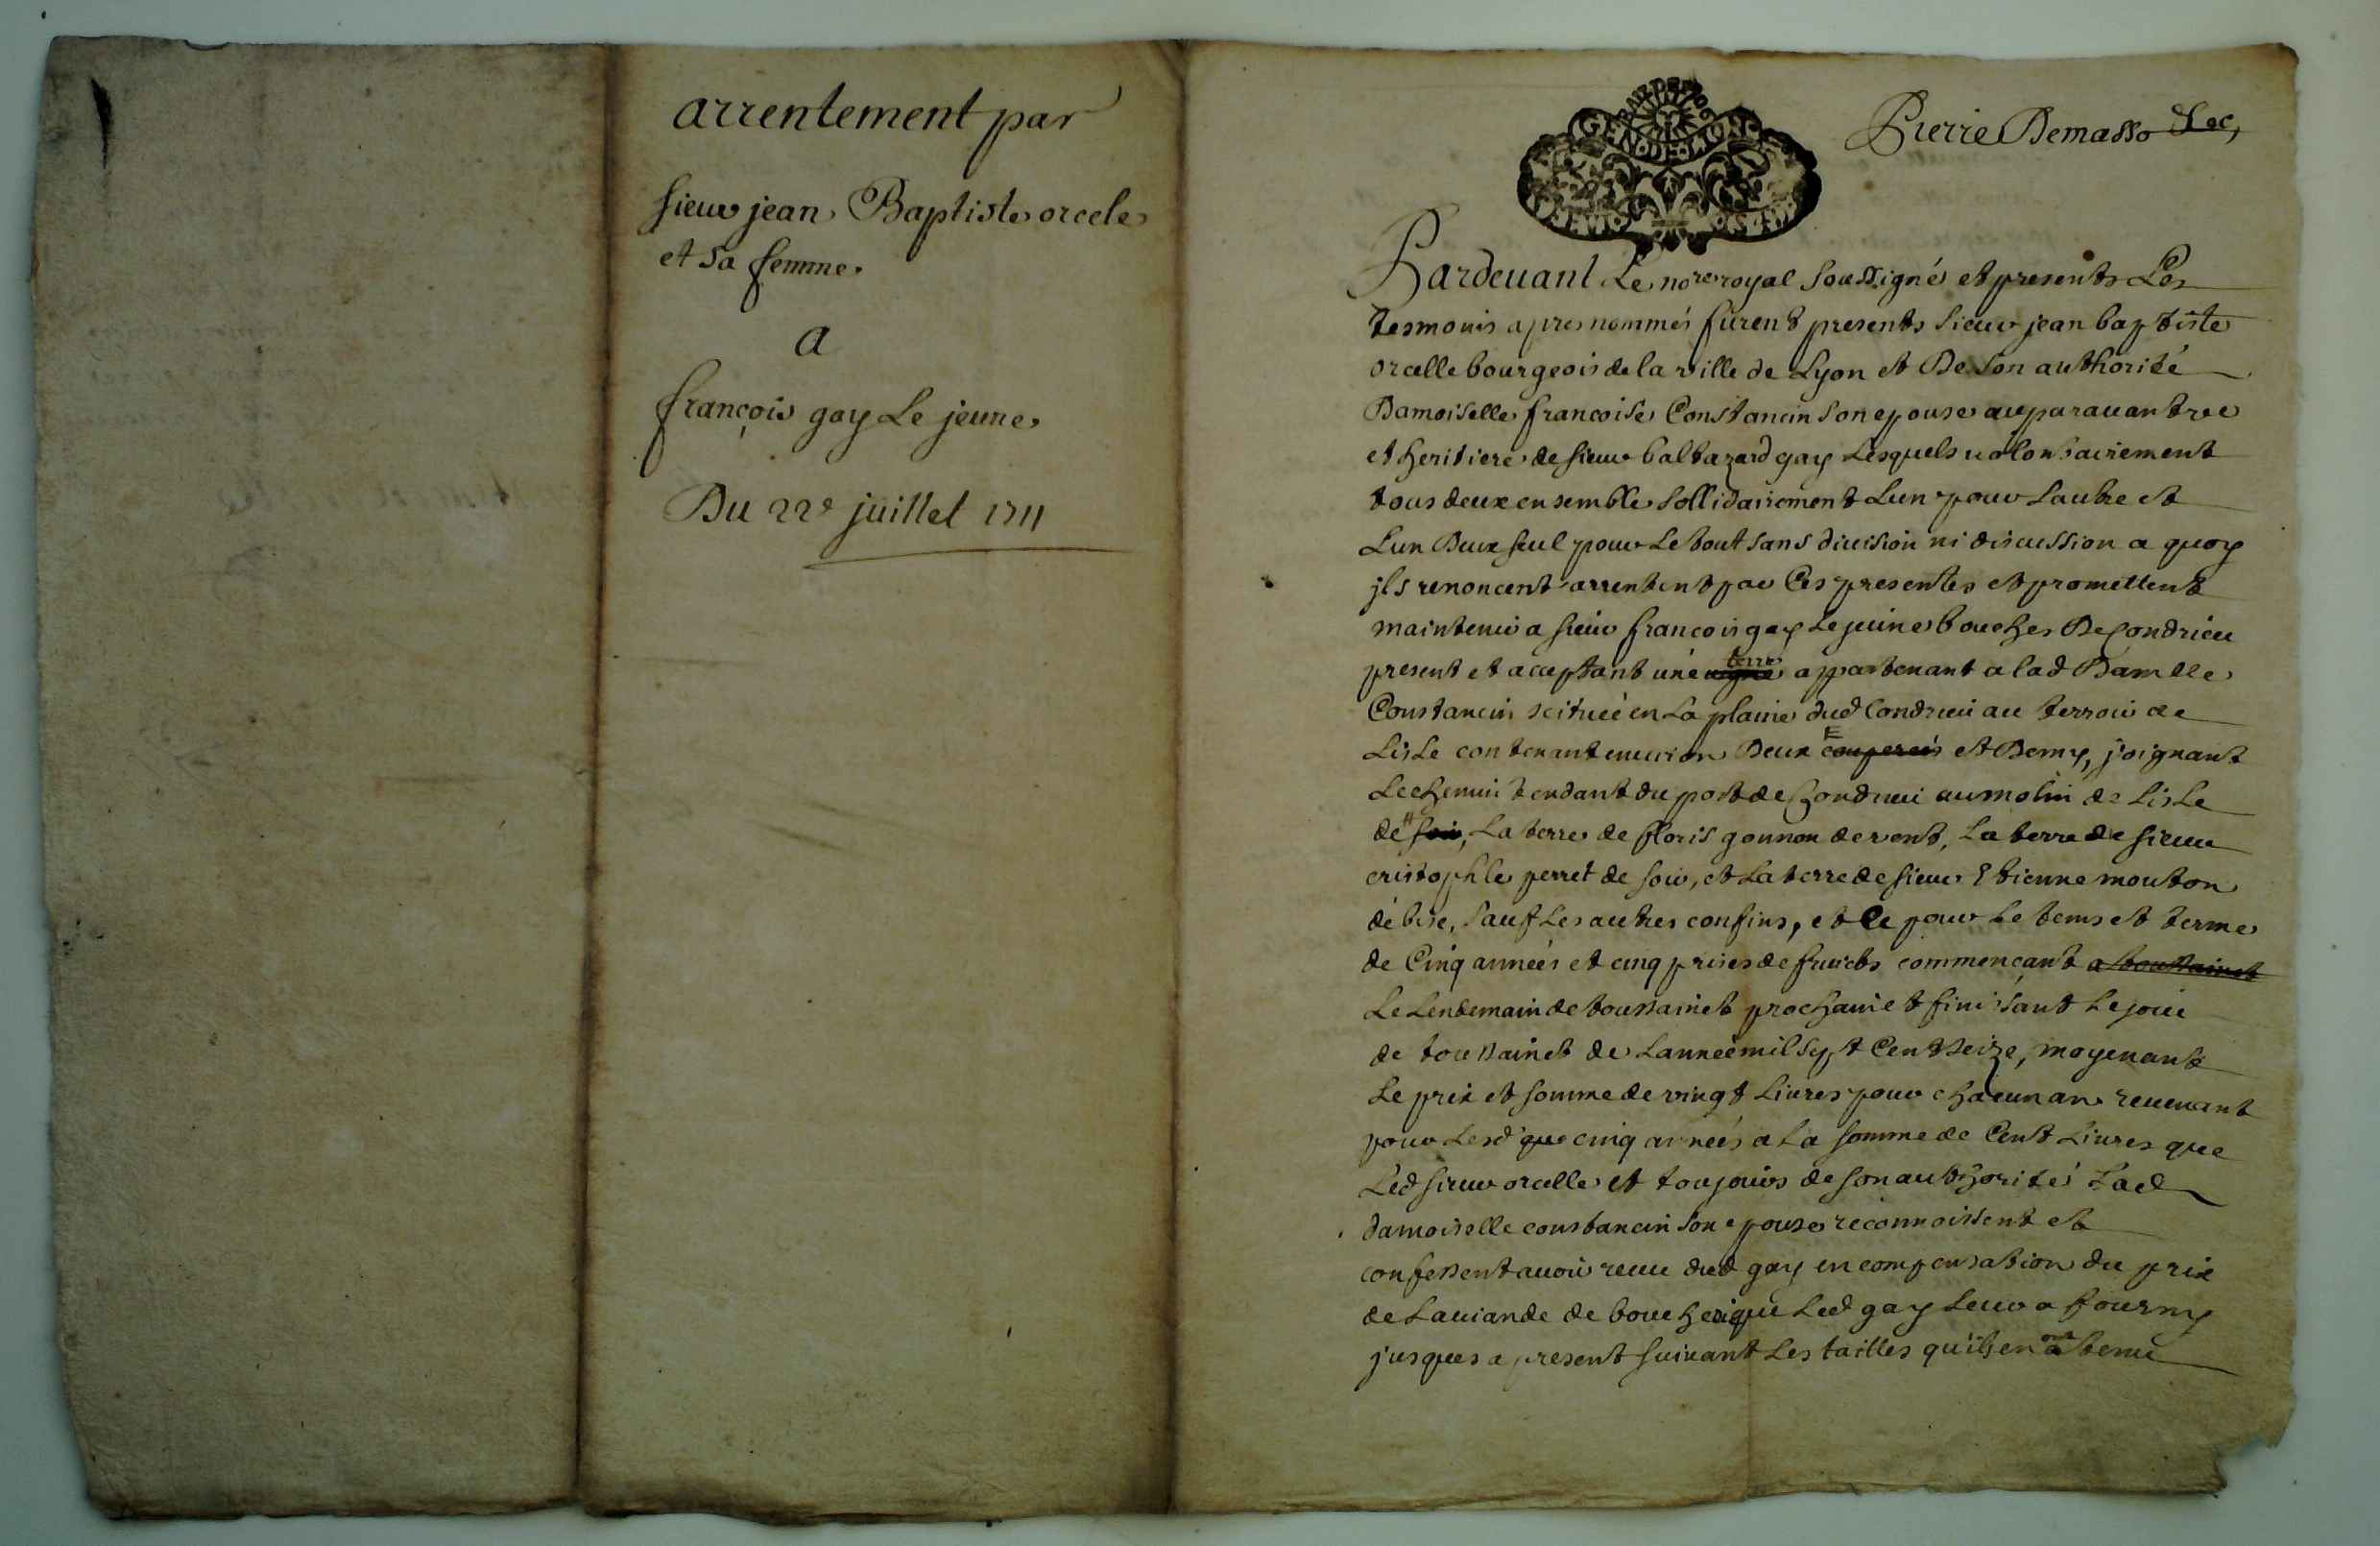 arrentement par
sieur jean Baptiste orcele
et sa femme.
A
françois gay Le jeune.
Du 22e juillet 1711
GEN DE LYON
Pierre Demasso
Pardeuant Le nore royal soussigné et presents Les
tesmoins apres nommés furent presents sieur jean baptiste
orcelle bourgeois de la ville de Lyon et De son authorité
Damoiselle francoise Constancin son epouse auparauant vve
et heritiere de sieur baltazard gay Lesquels uolontairement
tous deux ensemble sollidairement Lun pour Lautre et
Lun Deux seul pour Le tout sans diuision ni discussion a quoy
jls renoncent arrentent par Ces presentes et promettent
maintenir a sieur francois gay Le jeune boucher De Condrieu
present et acceptant une vigne terre appartenant a lad Damlle
Constancin scituée en La plaine dud Condrieu au terroir de
LisLe contenant enuiron Deux couperées et Demy, joignant
Le chemin tendant du port de Condrieu au molin de LisLe
de soir, La terre de floris gonnon de vent, La terre de sieur
cristophle perret de soir, et La terre de sieur Etienne mouton
de bise, sauf Les autres confins, et Ce pour Le tems et terme
de Cinq années et cinq prises de fruicts commencant a toussainct
Le Lendemain de toussainct prochain et finissant Le jour
de toussainct de Lannee mil sept Cent seize, moyenant
Le prix et somme de vingt Liures pour chacun an reuenant
pour Lesd cinq années a La somme de Cent Liures que
Led sieur orcelle et toujours de son authorité Lad
damoiselle constancin son epouse reconnoissent et
confessent auoir receu dud gay en compensation du prix
de La uiande de boucherie que Led gay Leur a fourny
jusques a present suiuant Les tailles qu'ils en ont a tenu